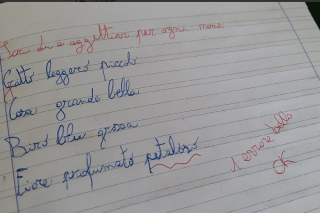 due aggettivi per ogni nome
Gatto leggero piccolo
Casa grande bella
Biro blu grossa
Fiore profumato petaloso
1 errore bello
ok